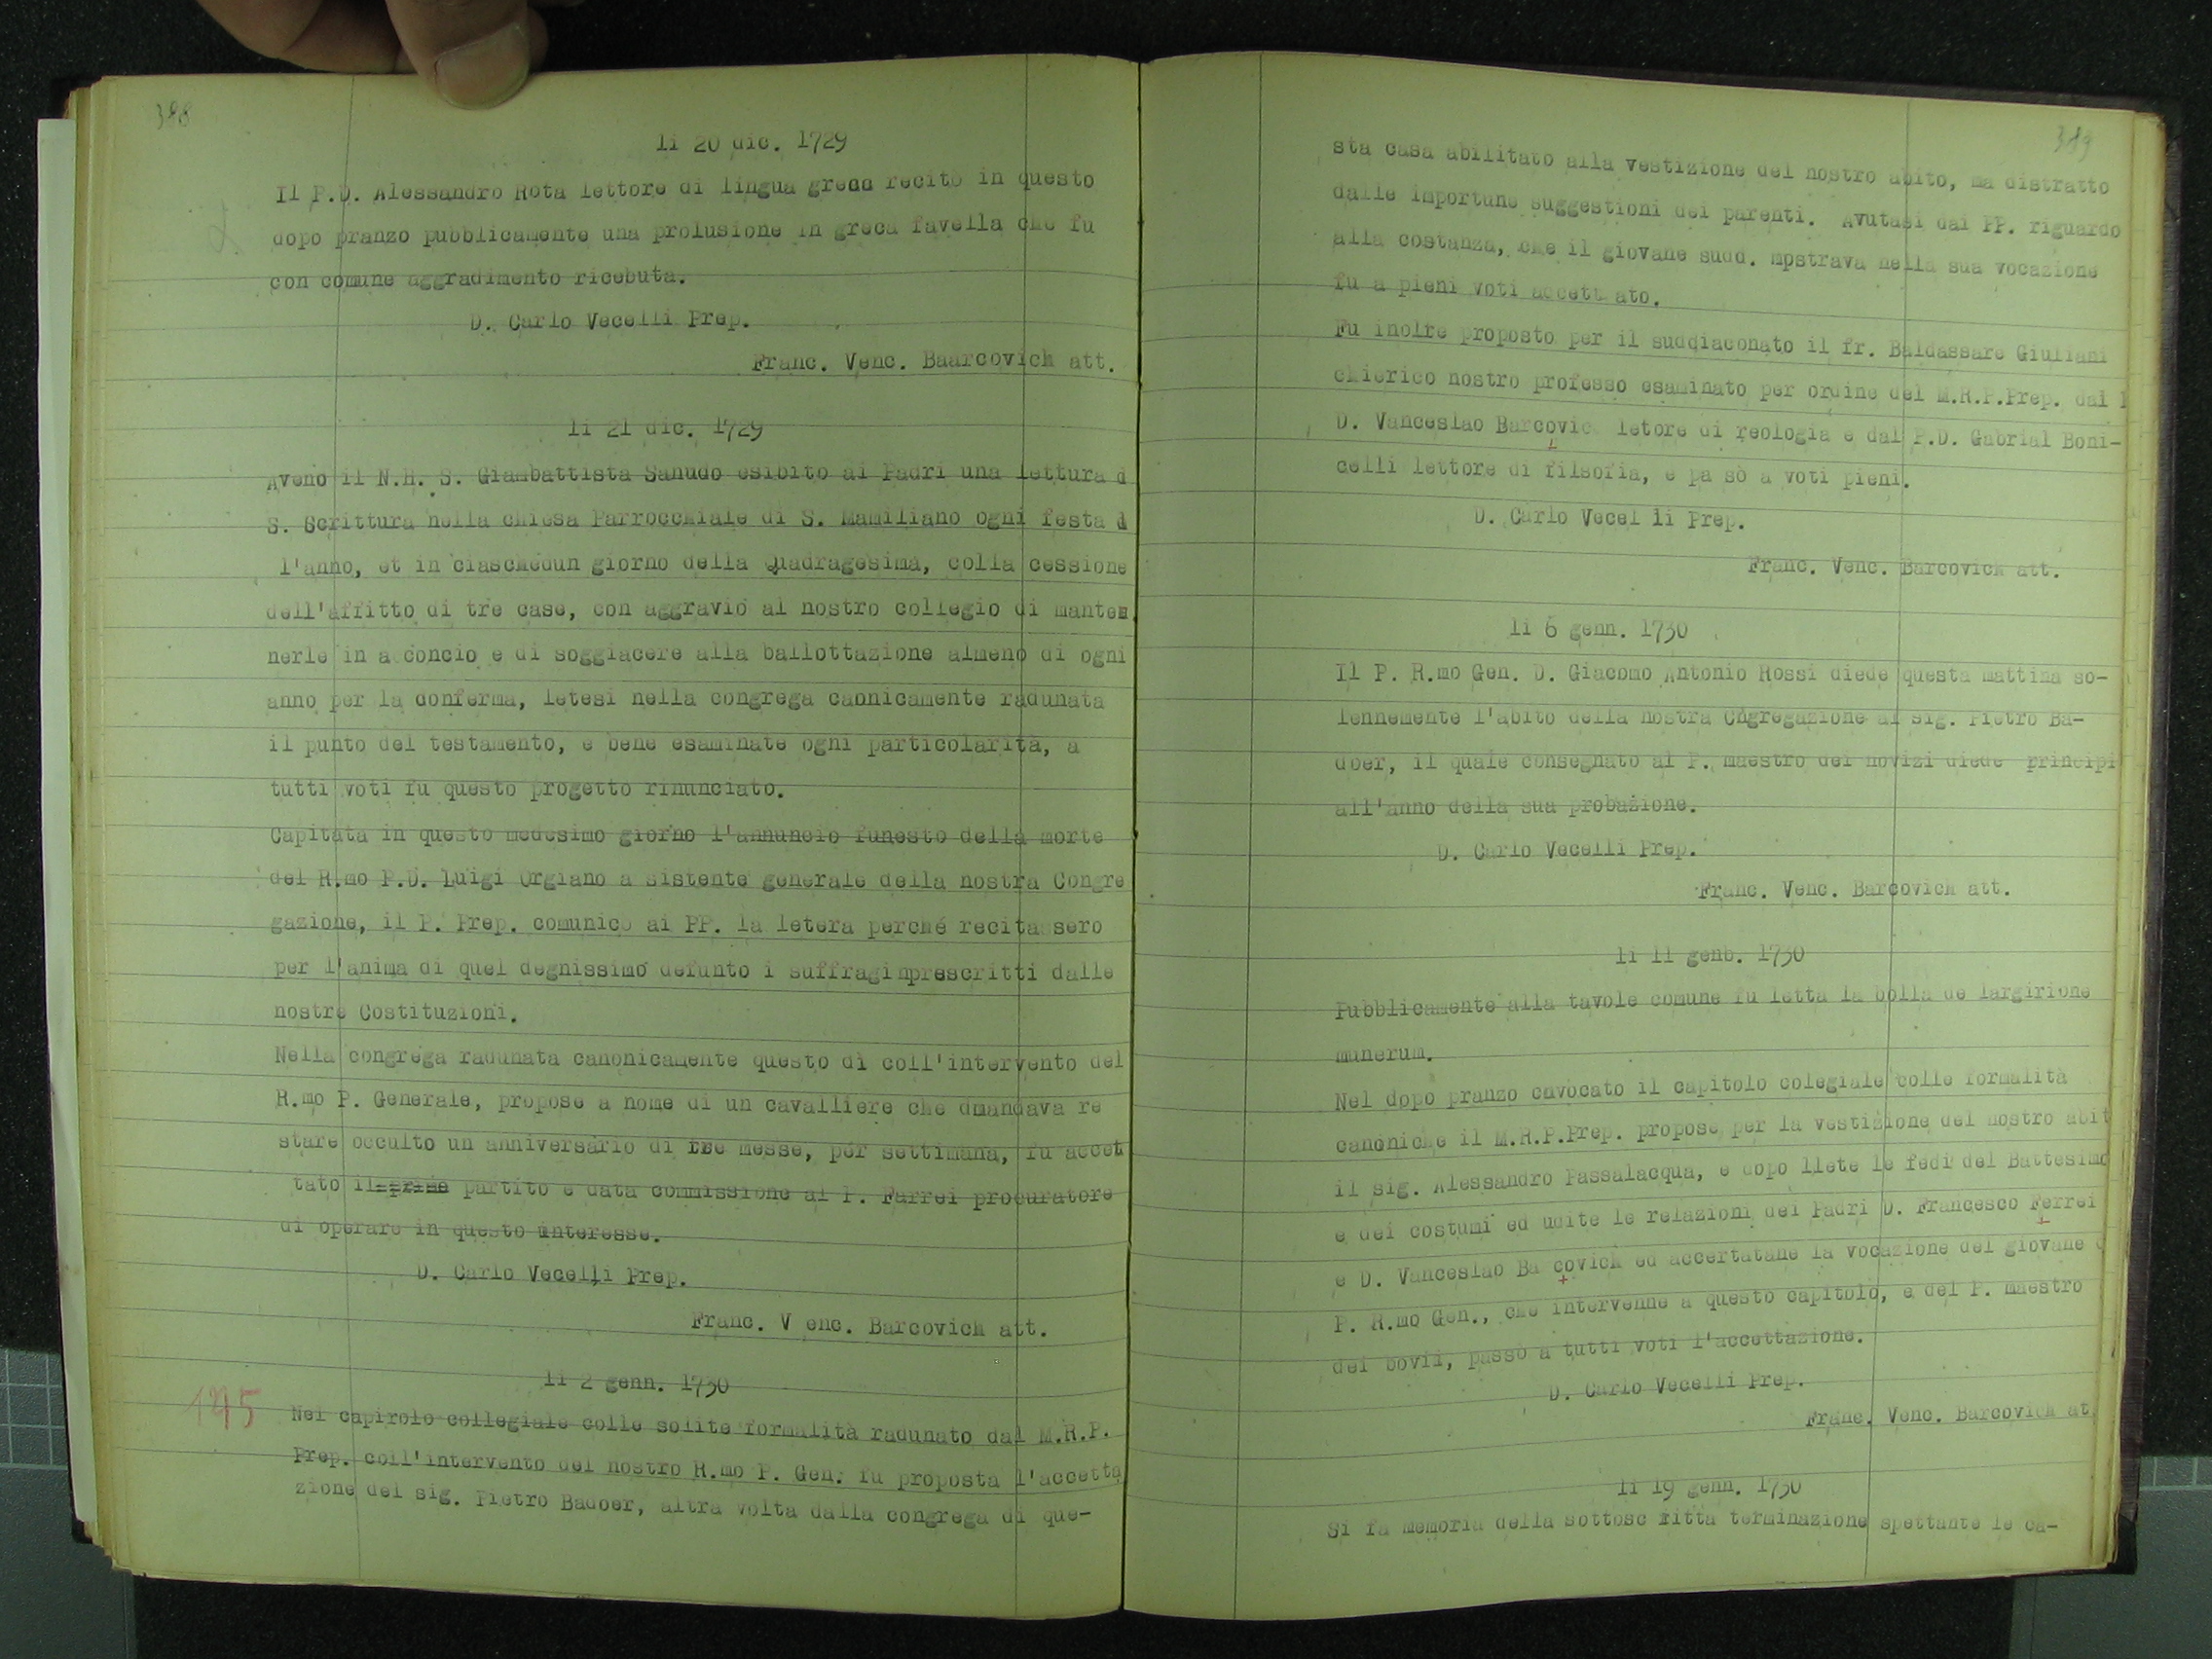 388
li 20 dic. 1729
Il P.D. Alessandro Rota lettore di lingua greca recitò in questo
dopo pranzo pubblicamente una prolusione in greca favella che fu
con comune aggradimento ricebuta.
D. Carlo Vecelli Prep.
Franc. Venc. Baarcovich att.
li 21 dic. 1729
Aveno il N.H. S. Giambattista Sanudo esibito ai Padri una lettura d
S. Scrittura nella chiesa Parrocchiale di S. Mamiliano ogni festa d
l'anno, et in ciaschedun giorno della Quadragesima, colla cessione
dell'affitto di tre case, con aggravio al nostro collegio di mante
nerle in acconcio e di soggiacere alla ballottazione almeno di ogni
anno per la conferma, letesi nella congrega caonicamente radunata
il punto del testamento, e bene esaminate ogni particolarità, a
tutti voti fu questo progetto rinunciato.
Capitata in questo medesimo giorno l'annuncio funesto della morte
del R.mo P.D. Luigi Orgiano a sistente generale della nostra Congre
gazione, il P. Prep. comunicò ai PP. la letera perché recitassero
per l'anima di quel degnissimo defunto i suffraginprescritti dalle
nostre Costituzioni.
Nella congrega radunata canonicamente questo dì coll'intervento del
R.mo P. Generale, propose a nome di un cavalliere che dmandava re
stare occulto un anniversario di tre messe, per settimana, fu accet
tato il partito e data commissione al P. Farrei procuratore
di operare in questo interesse.
D. Carlo Vecelli Prep.
Franc. V enc. Barcovich att.
li 2 genn. 1730
195 Nel capirolo collegiale colle solite formalità radunato dal M.R.P.
Prep. coll'intervento del nostro R.mo P. Gen. fu proposta l'accetta
zione del sig. Pietro Badoer, altra volta dalla congrega di que-
389
sta casa abilitato alla vestizione del nostro abito, ma distratto
dalle importune suggestioni dei parenti. Avutasi dai PP. riguardo
alla costanza, che il giovane sudd. mpstrava nella sua vocazione
fu a pieni voti accett ato.
Fu inolre proposto per il suddiaconato il fr. Baldassare Giuliani
chierico nostro professo esaminato per ordine del M.R.P.Prep. dal
D. Vanceslao Barcovic letore di reologia e dal P.D. Gabrial Boni-
celli lettore di filsofia, e pa sò a voti pieni.
D. Carlo Vecel li Prep.
Franc. Venc. Barcovich att.
li 6 genn. 1730
Il P. R.mo Gen. D. Giacomo Antonio Rossi diede questa mattina so-
lennemente l'abito della nostra Cngregazione al sig. Pietro Ba-
doer, il quale consegnato al P. maestro dei novizi diede principi
all'anno della sua probazione.
D. Carlo Vecelli Prep.
Franc. Venc. Barcovich att.
li 11 genb. 1730
Pubblicamente alla tavole comune fu letta la bolla de largirione
munerum.
Nel dopo pranzo cnvocato il capitolo colegiale colle formalità
canoniche il M.R.P.Prep. propose per la vestizione del nostro abit
il sig. Alessandro Passalacqua, e dopo llete le fedi del Battesimo
e dei costumi ed udite le relazioni dei Padri D. Francesco Ferrei
e D. Vanceslao Ba covich ed accertatane la vocazione del giovane
P. R.mo Gen., che intervenne a questo capitolo, e del P. maestro
dei bovii, passò a tutti voti l'accettazione.
D. Carlo Vecelli Prep.
Franc. Venc. Barcovich at
li 19 genn. 1730
Si fa memoria della sottosc ritta terminazione spettante le ca-